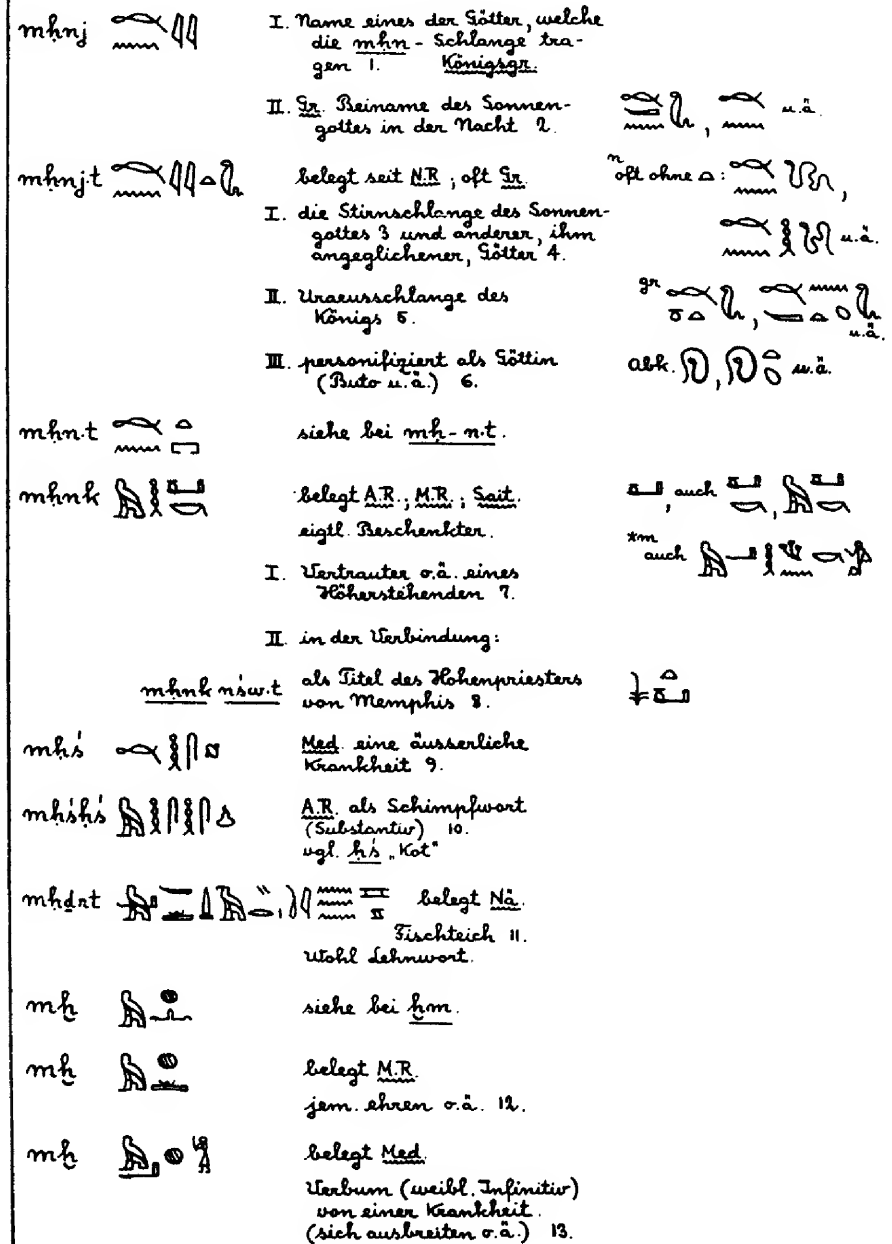 mḥnj I. Name eines der Götter, welche
die mḥn - Schlange tra-
gen 1. Königsgr.
II. Gr. Beiname des Sonnen-
gottes in der Nacht 2. u.ä.
mḥnj.t belegt seit N.R.; oft Gr. n oft ohne
I. die Stirnschlange des Sonnen-
gottes 3 und anderer, ihm
angeglichener, Götter 4. u.ä.
II. Uraeusschlange des gr
Königs 5. u.ä.
III. personifiziert als Göttin abk. u.ä.
(Buto u.ä.) 6.
mḥn.t siehe bei mḥ-n.t.
mḥnk belegt A.R.; M.R.; Sait. auch
eigtl. Beschenkter. *m auch
I. Vertrauter o.ä. eines
Höherstehenden 7.
II. in der Verbindung:
mḥnk nśw.t als Titel des Hohenpriesters
von Memphis 8.
mḥś Med. eine äusserliche
Krankheit 9.
mḥśḥś A.R. als Schimpfwort
(Substantiv) 10.
vgl. ḥś „Kot“
mḥḏrt belegt Nä.
Fischteich 11.
Wohl Lehnwort.
mḫ siehe bei ḫm.
mḫ belegt M.R.
jem. ehren o.ä. 12.
mḫ belegt Med.
Verbum (weibl. Infinitiv)
von einer Krankheit.
(sich ausbreiten o.ä.) 13.